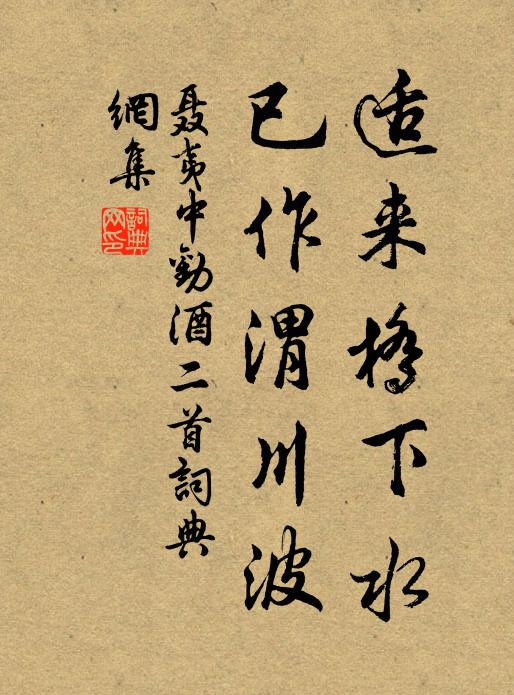 适来橋下水
已作渭川波
聂夷中勸酒二首詞典
網集
詞典网印